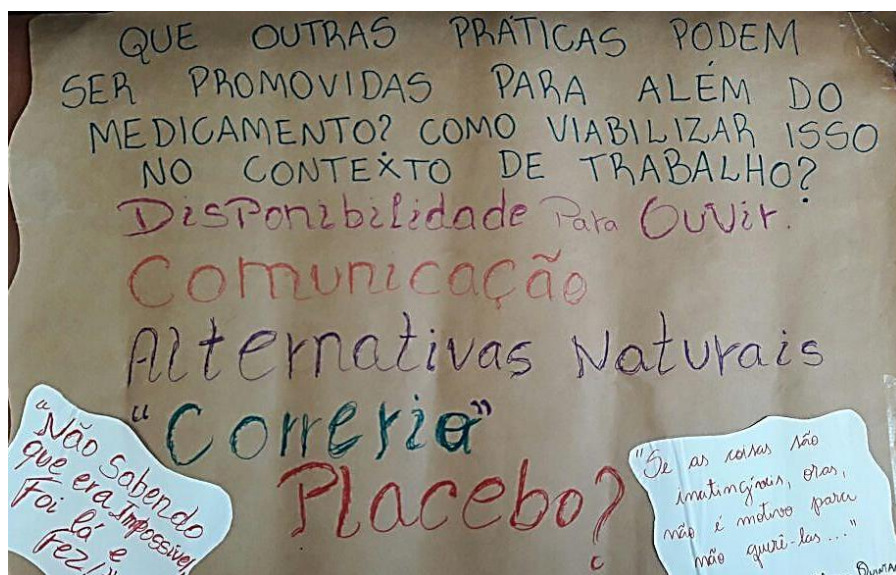 QUE OUTRAS PRÁTICAS PODEM
SER PROMOVIDAS PARA ALÉM DO
MEDICAMENTO? COMO VIABILIZAR ISSO
NO CONTEXTO DE TRABALHO?
Disponibilidade Para Ouvir.
Comunicação
Alternativas Naturais
"Correria"
Placebo?
"Não Sabendo
que era Impossível,
Foi lá e
Fez!"
"Se as coisas são
inatingíveis, oras,
não é motivo para
não querê-las..."